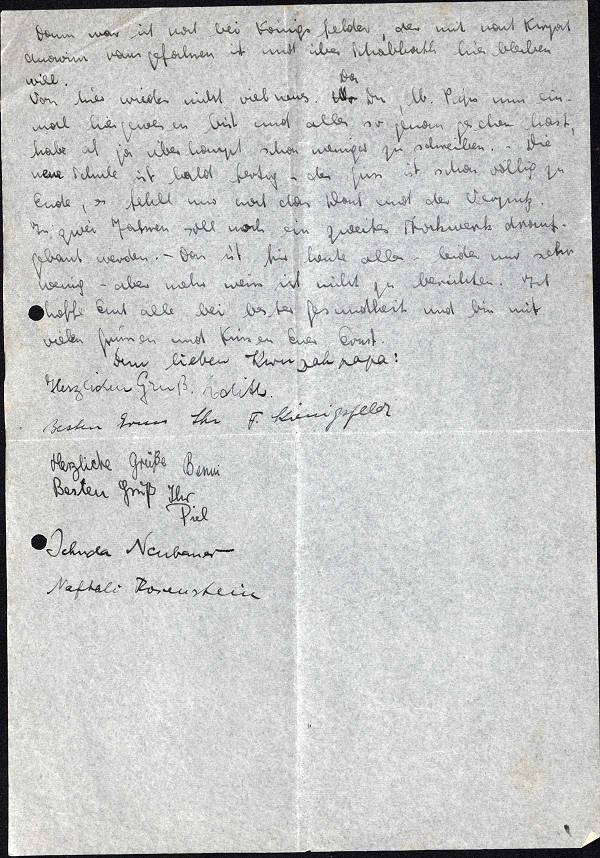 Dann war ich noch bei Königsfelder, der mit nach Kirjat
anavim rausgefahren ist und über Schabbath hier bleiben
will.
Von hier wieder nicht viel neues. Da Du, lb. Papa nun ein-
mal hiergewesen bist und alles so genau gesehen hast,
habe ich ja überhaupt schon weniger zu schreiben. - Die
neue Schule ist bald fertig - der Guss ist schon völlig zu
Ende, es fehlt nur noch das Dach und der Verputz.
In zwei Jahren soll noch ein zweites Stockwerk drauf-
gebaut werden. - Das ist für heute alles - leider nur sehr
wenig - aber mehr weiss ich nicht zu berichten. Ich
hoffe Euch alle bei bester Gesundheit und bin mit
vielen Grüssen und Küssen Euer Ernst.
Dem lieben Kwuzahpapa!
Herzlichen Gruß. Edith.
Besten Gruss Ihr F. Königsfeld
Herzliche Grüße Benni
Besten Gruß Ihr
Piel
Jehuda Neubauer
Naftali Rosenstein